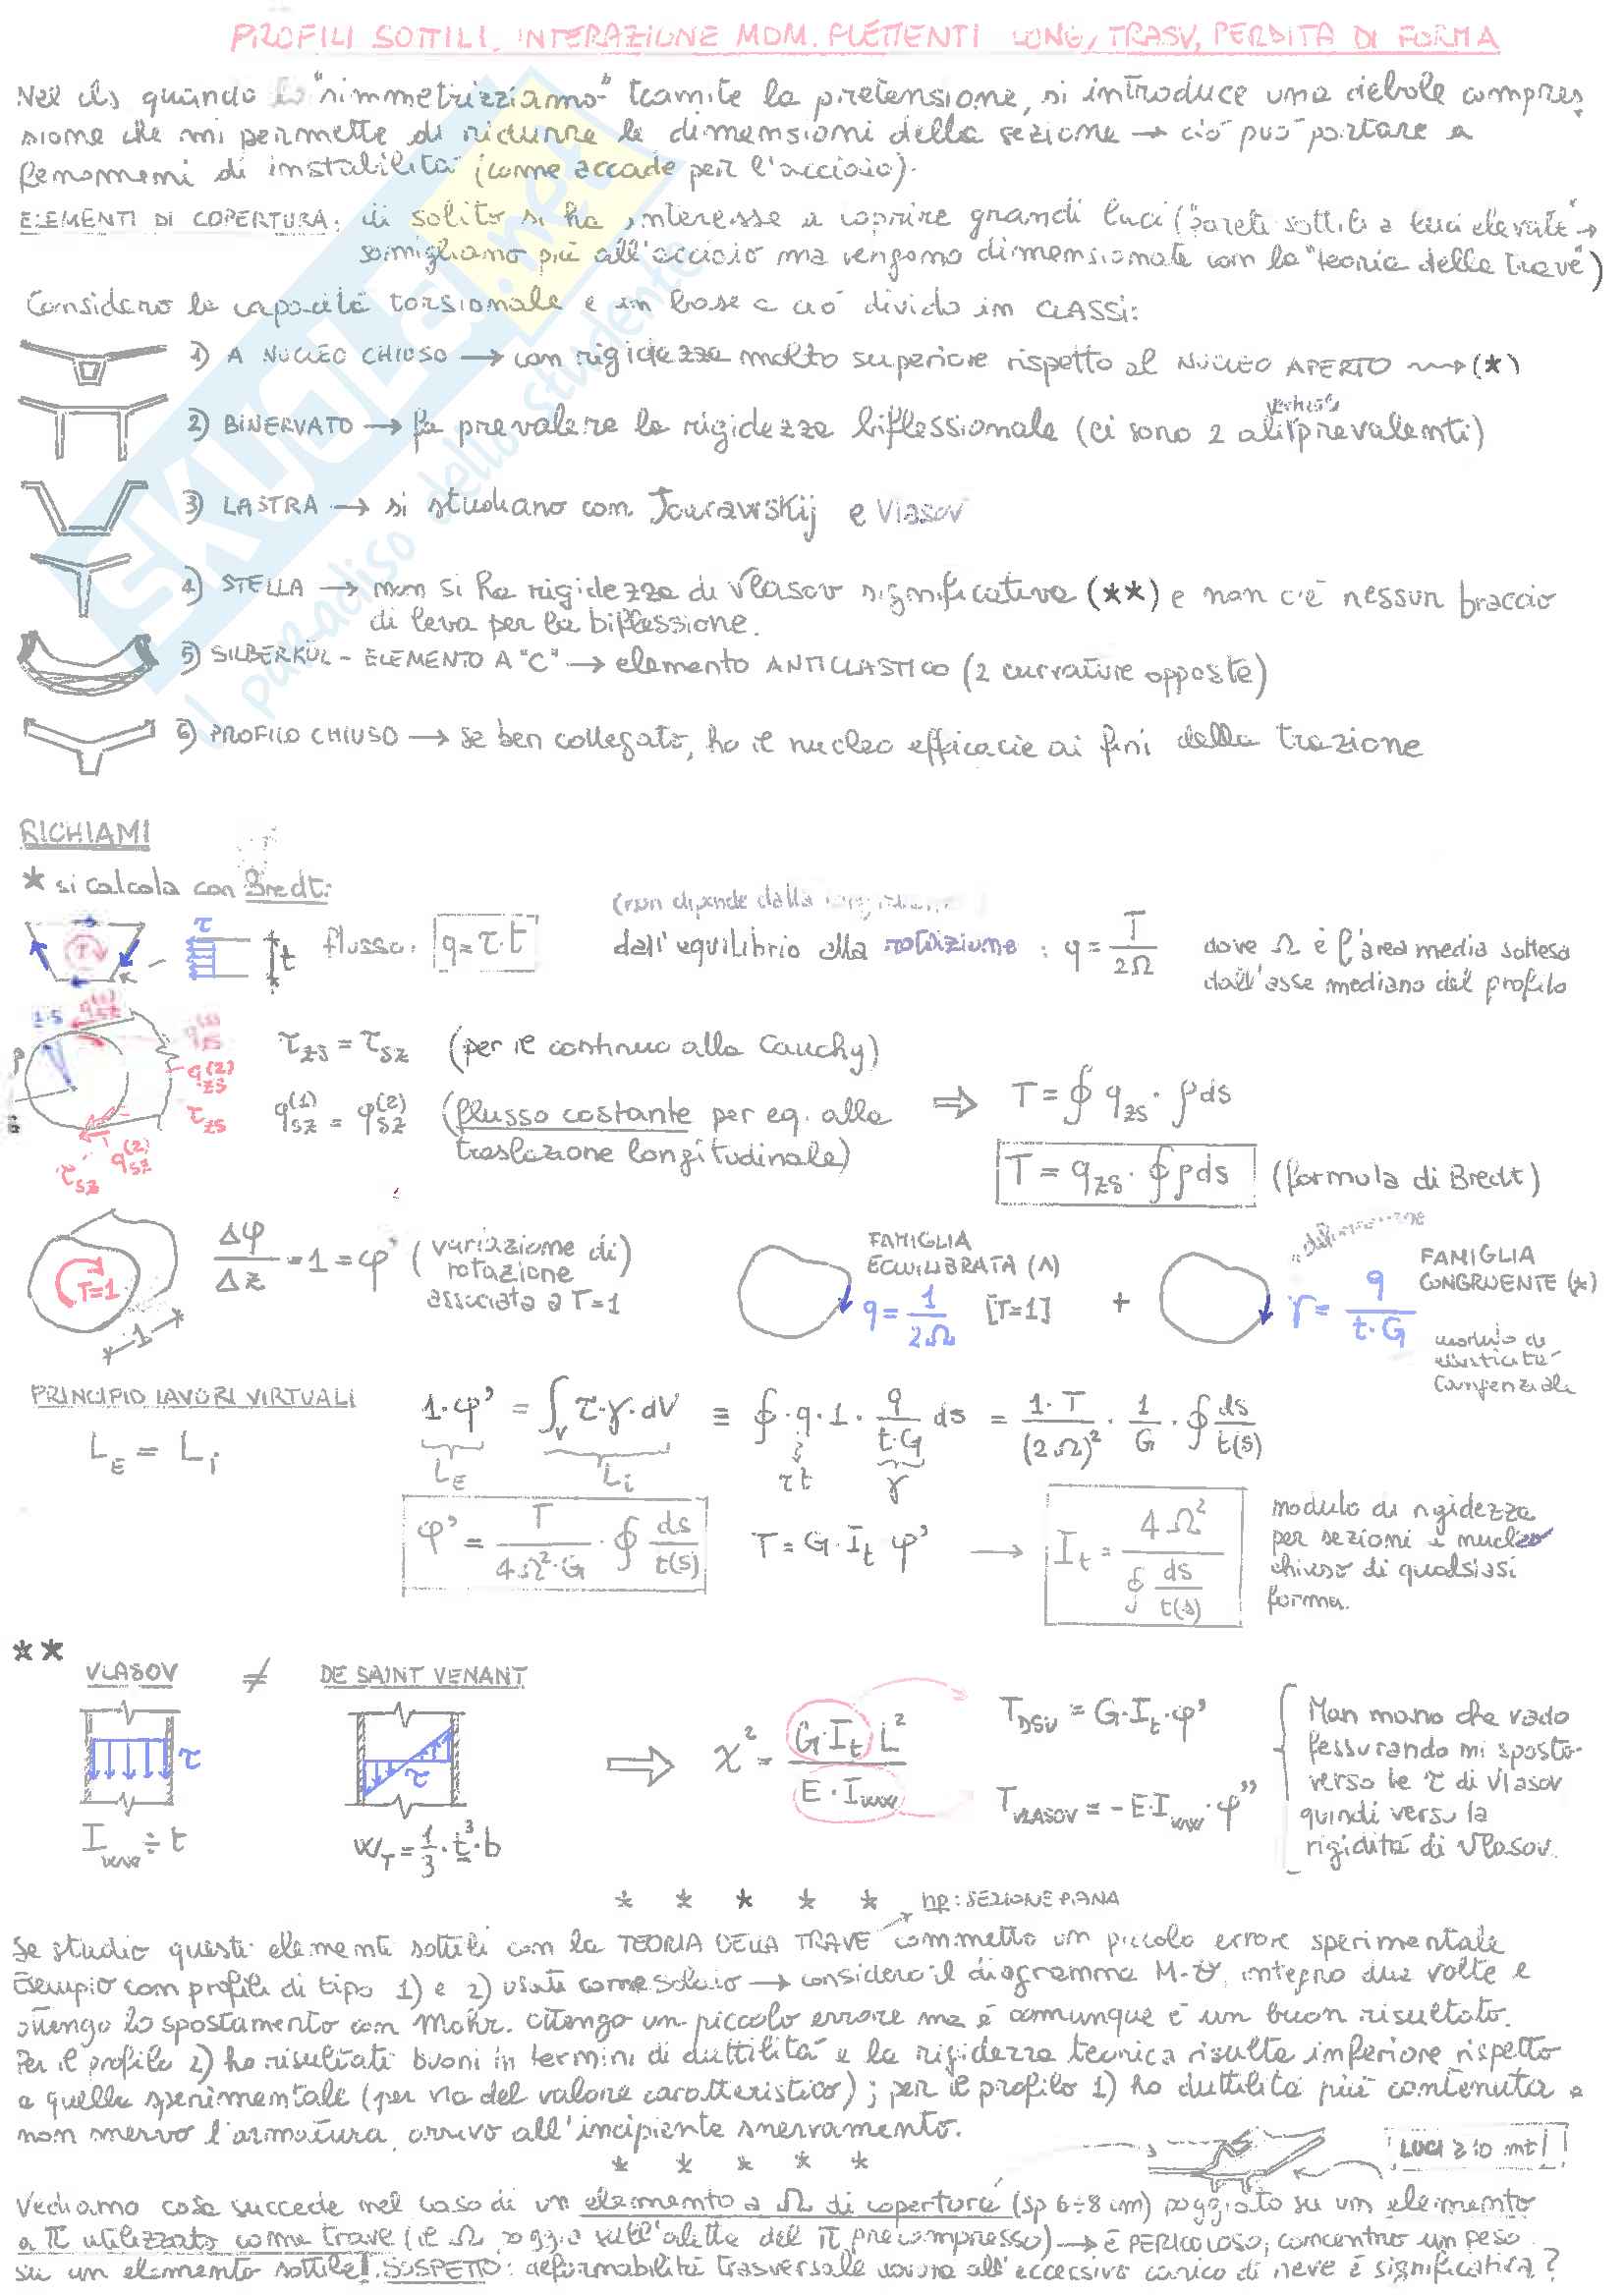 PROFILI SOTTILI, INTERAZIONE MOM. FLETTENTI LONG/TRASV, PERDITA DI FORMA
Nel cls quando lo "simmetrizziamo" tramite la pretensione, si introduce una debole compres
sione che mi permette di ridurre le dimensioni della sezione → ciò può portare a
fenomeni di instabilità (come accade per l'acciaio).
ELEMENTI DI COPERTURA: di solito si ha interesse a coprire grandi luci ("pareti sottili a luci elevate" →
somigliano più all'acciaio ma vengono dimensionate con la "teoria della trave")
Considero la capacità torsionale e in base a ciò divido in CLASSI:
1) A NUCLEO CHIUSO → con rigidezza molto superiore rispetto al NUCLEO APERTO ⇝ (*)
2) BINERVATO → fa prevalere la rigidezza biflessionale (ci sono 2 ali verticali prevalenti)
3) LASTRA → si studiano con Jourawskij e Vlasov
4) STELLA → non si ha rigidezza di Vlasov significativa (**) e non c'è nessun braccio
di leva per la biflessione.
5) SILBERKÜL - ELEMENTO A "C" → elemento ANTICLASTICO (2 curvature opposte)
6) PROFILO CHIUSO → se ben collegato, ho il nucleo efficacie ai fini della trazione
SKUOLA.net
il paradiso dello studente
RICHIAMI
* si calcola con Bredt:
(non dipende dalla
τ t flusso: q = τ·t dall'equilibrio alla rotazione : q = T/2Ω dove Ω è l'area media sottesa
dall'asse mediano del profilo
T
τzs = τsz (per il continuo alla Cauchy)
qsz(1) = qsz(2) (flusso costante per eq. alla ⇒ T = ∮ qzs · ρds
traslazione longitudinale) T = qzs · ∮ρds (formula di Bredt)
1·s ρ qzs(2) τzs qsz(2) τsz
T=1 1 Δφ/Δz = 1 = φ' (variazione di rotazione associata a T=1)
FAMIGLIA EQUILIBRATA (^) q = 1/2Ω [T=1] + γ = q/t·G FAMIGLIA CONGRUENTE (*)
modulo di elasticità tangenziale
PRINCIPIO LAVORI VIRTUALI 1·φ' = ∫v τ·γ·dV ≡ ∮·q·1·q/t·G ds = 1·T/(2Ω)² · 1/G · ∮ds/t(s)
LE = Li LE Li τt γ
φ' = T/4Ω²·G · ∮ ds/t(s) T = G·It φ' → It = 4Ω²/∮ ds/t(s) modulo di rigidezza
per sezioni a nucleo
chiuso di qualsiasi
forma.
**
VLASOV ≠ DE SAINT VENANT
τ τ ⇒ χ² = G·It L²/E·Iww
TDSV = G·It·φ'
TVLASOV = -E·Iww·φ'''
Man mano che vado
fessurando mi sposto
verso le τ di Vlasov
quindi verso la
rigidità di Vlasov.
Iww ÷ t WT = 1/3·t³·b
* * * * * hp: SEZIONE PIANA
Se studio questi elementi sottili con la TEORIA DELLA TRAVE commetto un piccolo errore sperimentale
Esempio con profili di tipo 1) e 2) usati come solaio → considero il diagramma M-θ, integro due volte e
ottengo lo spostamento con Mohr. Ottengo un piccolo errore ma è comunque è un buon risultato.
Per il profilo 2) ho risultati buoni in termini di duttilità e la rigidezza teorica risulta inferiore rispetto
a quella sperimentale (per via del valore caratteristico); per il profilo 1) ho duttilità più contenuta e
non snervo l'armatura, arrivo all'incipiente snervamento.
* * * * *
LUCI ≥ 10 mt!
Vediamo cosa succede nel caso di un elemento a Ω di copertura (sp 6÷8 cm) poggiato su un elemento
a π utilizzato come trave (il Ω poggia sull'aletta del π precompresso) → è PERICOLOSO, concentro un peso
su un elemento sottile! SOSPETTO: deformabilità trasversale dovuta all'eccessivo carico di neve è significativa?